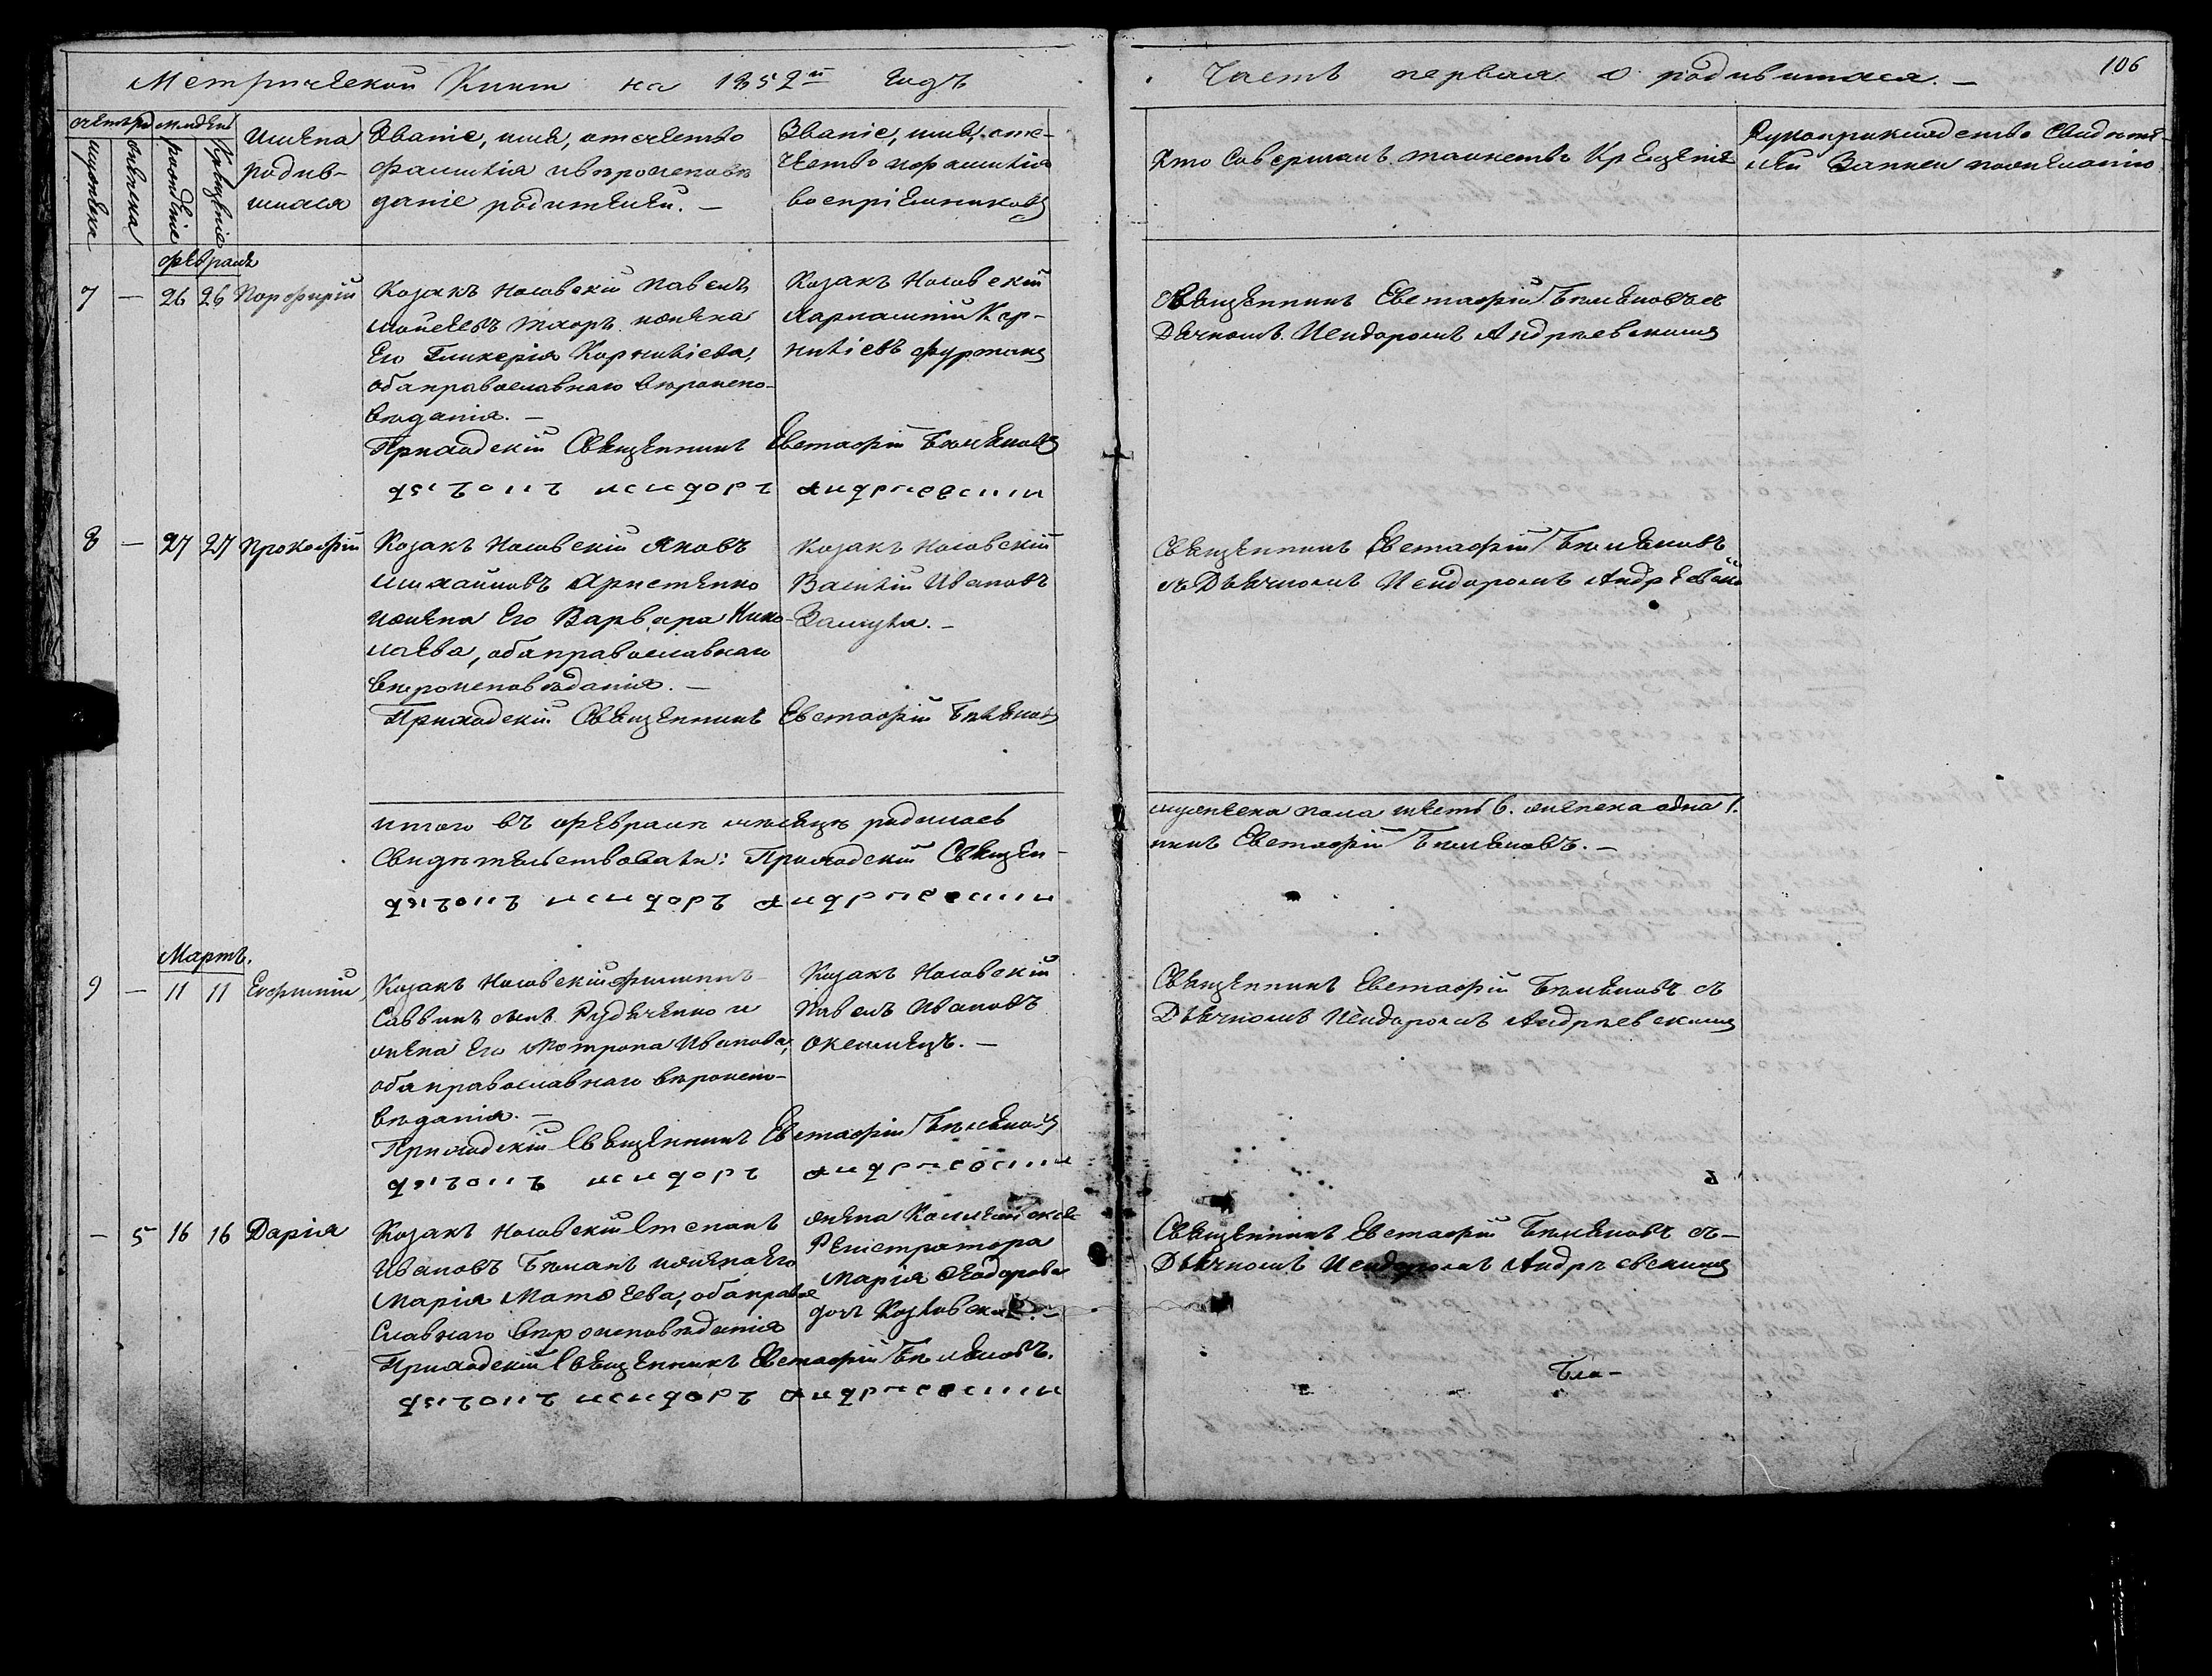 Метрической Книги на 1852й годъ
Часть первая о родившихся. —
106
Счетъ ро
м. и день
мужеска
женска
рожденіе
крещеніе
имена
родив-
шихся
Званіе, имя, отечество
фамилія и вероиспове
даніе родителей. —
Званіе, имя, оте-
чество и фамилія
воспріемниковъ
Кто Совершалъ таинство Крещенія
Рукоприкладство Свидете-
лей Записи по желанію
февраля
7 — 26 26 Порфирій
Козакъ Носовскій Павелъ
Мойсеевъ Тхоръ и жена
Его Гликерія Корниліева,
оба православнаго вероиспо-
веданія. —
Приходскій Священникъ Евстафій Белёновъ
дячокъ исидоръ андріевскій
Козакъ Носовскій
Харлампій Кор-
ниліевъ Фурманъ
Священникъ Евстафій Белёновъ съ
Дячкомъ Исидоромъ Андріевскимъ
8 — 27 27 Прокофій
Козакъ Носовскій Яковъ
Михайловъ Христенко
и жена Его Варвара Нико-
лаева, оба православнаго
вероисповеданія. —
Приходскій Священникъ Евстафій Белёновъ
Козакъ Носовскій
Василій Ивановъ
Замула. —
Священникъ Евстафій Белёновъ
съ Дьячкомъ Исидоромъ Андреевски
итого въ феврале месяце родилось
мужеска пола шесть 6. женска одна 1.
Свидетельствовали: Приходскій Священ-
никъ Евстафій Белёновъ. —
дячокъ исидоръ андріевскій
Мартъ.
9 — 11 11 Евфимій
Козакъ Носовскій Филиппъ
Саввинъ сынъ Рудченко и
жена Его Мотрона Иванова,
оба православнаго вероиспо-
веданія. —
Приходскій Священникъ Евстафій Белёновъ
дячокъ исидоръ андріевскій
Козакъ Носовскій
Павелъ Ивановъ
Священникъ Евстафій Белёновъ съ
Дьячкомъ Исидоромъ Андріевскимъ
— 5 16 16 Дарія
Козакъ Носовскій Степанъ
Ивановъ Беланъ и жена Его
Марія Матѳеева, оба право
Славнаго вероисповеданія
Приходскій Священникъ Евстафій Белёновъ.
дячокъ исидоръ андріевскій
жена Коллежскаго
Регистратора
Марія Ѳеодорова
дочь
Священникъ Евстафій Белёновъ съ —
Дьячкомъ Исидоромъ Андріевскимъ
Бла-